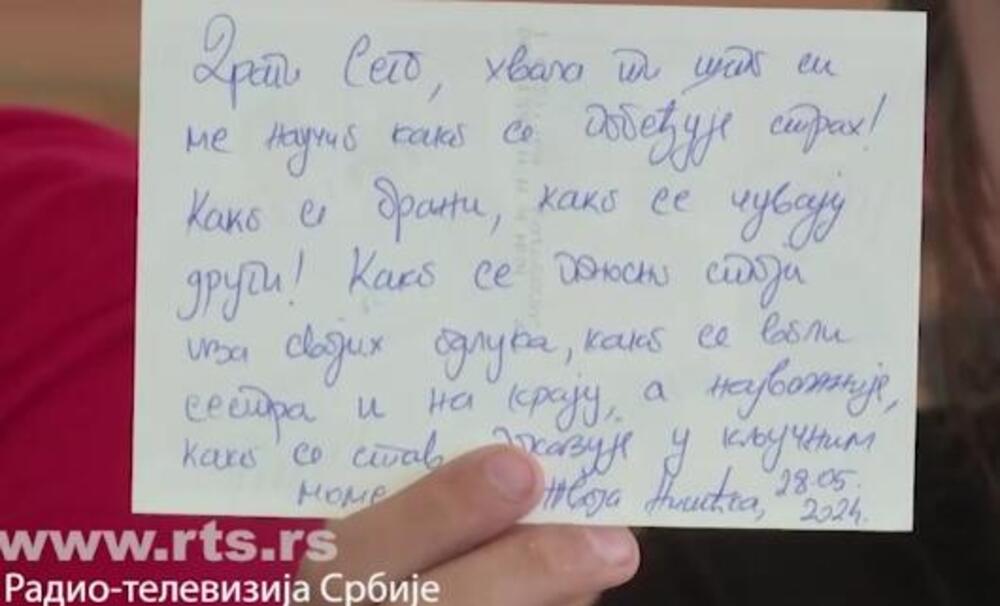 Драги Сето, хвала ти што си
ме научио како се побеђује страх!
Како се брани, како се чувају
други! Како се поносно стоји
иза својих одлука, како се воли
сестра и на крају, а најважније,
како се став показује у кључним
моме Твоја 28.05.
2024.
www.rts.rs
Радио-телевизија Србије